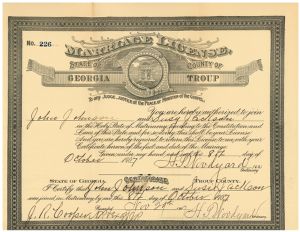 No. 226
MARRIAGE LICENSE.
STATE OF
COUNTY OF
GEORGIA
TROUP
To any JUDGE, JUSTICE OF THE PEACE OR MINISTER OF THE GOSPEL.
You are hereby authorized to join
John Johnson and Susy Jackson
in the Holy State of Matrimony according to the Constitution and
Laws of this State and for so doing this shall be your License.
And you are hereby required to return this License to me, with your
Certificate hereon of the fact and date of the Marriage.
Given under my hand and seal this 8th day of
October 1917
Ordinary
STATE OF GEORGIA
CERTIFICATE
TROUP COUNTY.
I Certify that John Johnson and Susie Jackson
were joined in Matrimony by me this 8th day of October 1917
J. R. Cooper